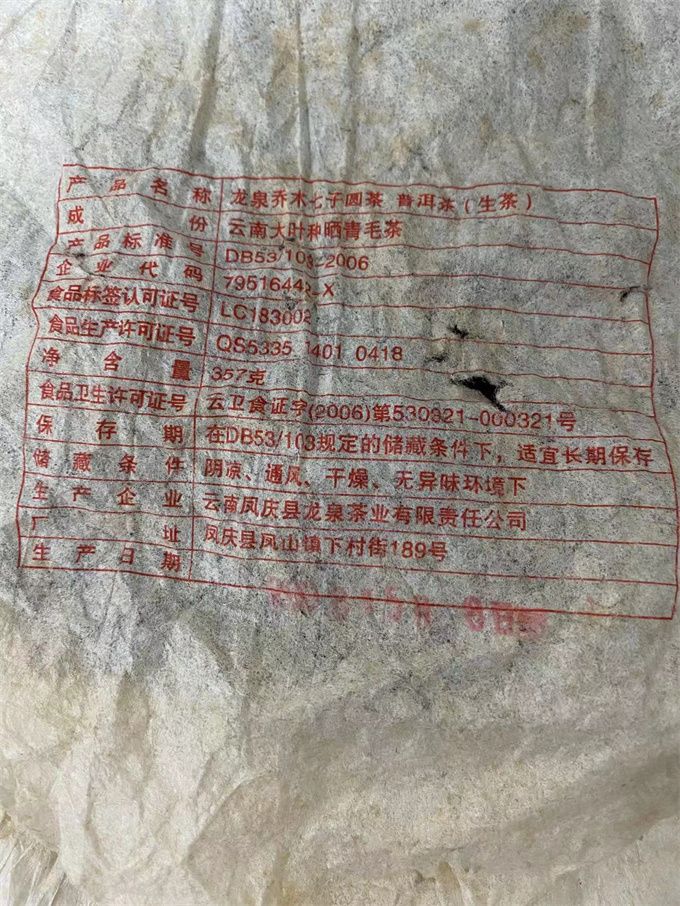 产品名称 龙泉乔木七子圆茶 普洱茶（生茶）
成份 云南大叶种晒青毛茶
产品标准号 DB53/103-2006
企业代码 7951644 -X
食品标签认可证号 LC183002
食品生产许可证号 QS5335 1401 0418
净含量 357克
食品卫生许可证号 云卫食证字(2006)第530321-000321号
保存期 在DB53/103规定的储藏条件下，适宜长期保存
储藏条件 阴凉、通风、干燥、无异味环境下
生产企业 云南凤庆县龙泉茶业有限责任公司
厂址 凤庆县凤山镇下村街189号
生产日期